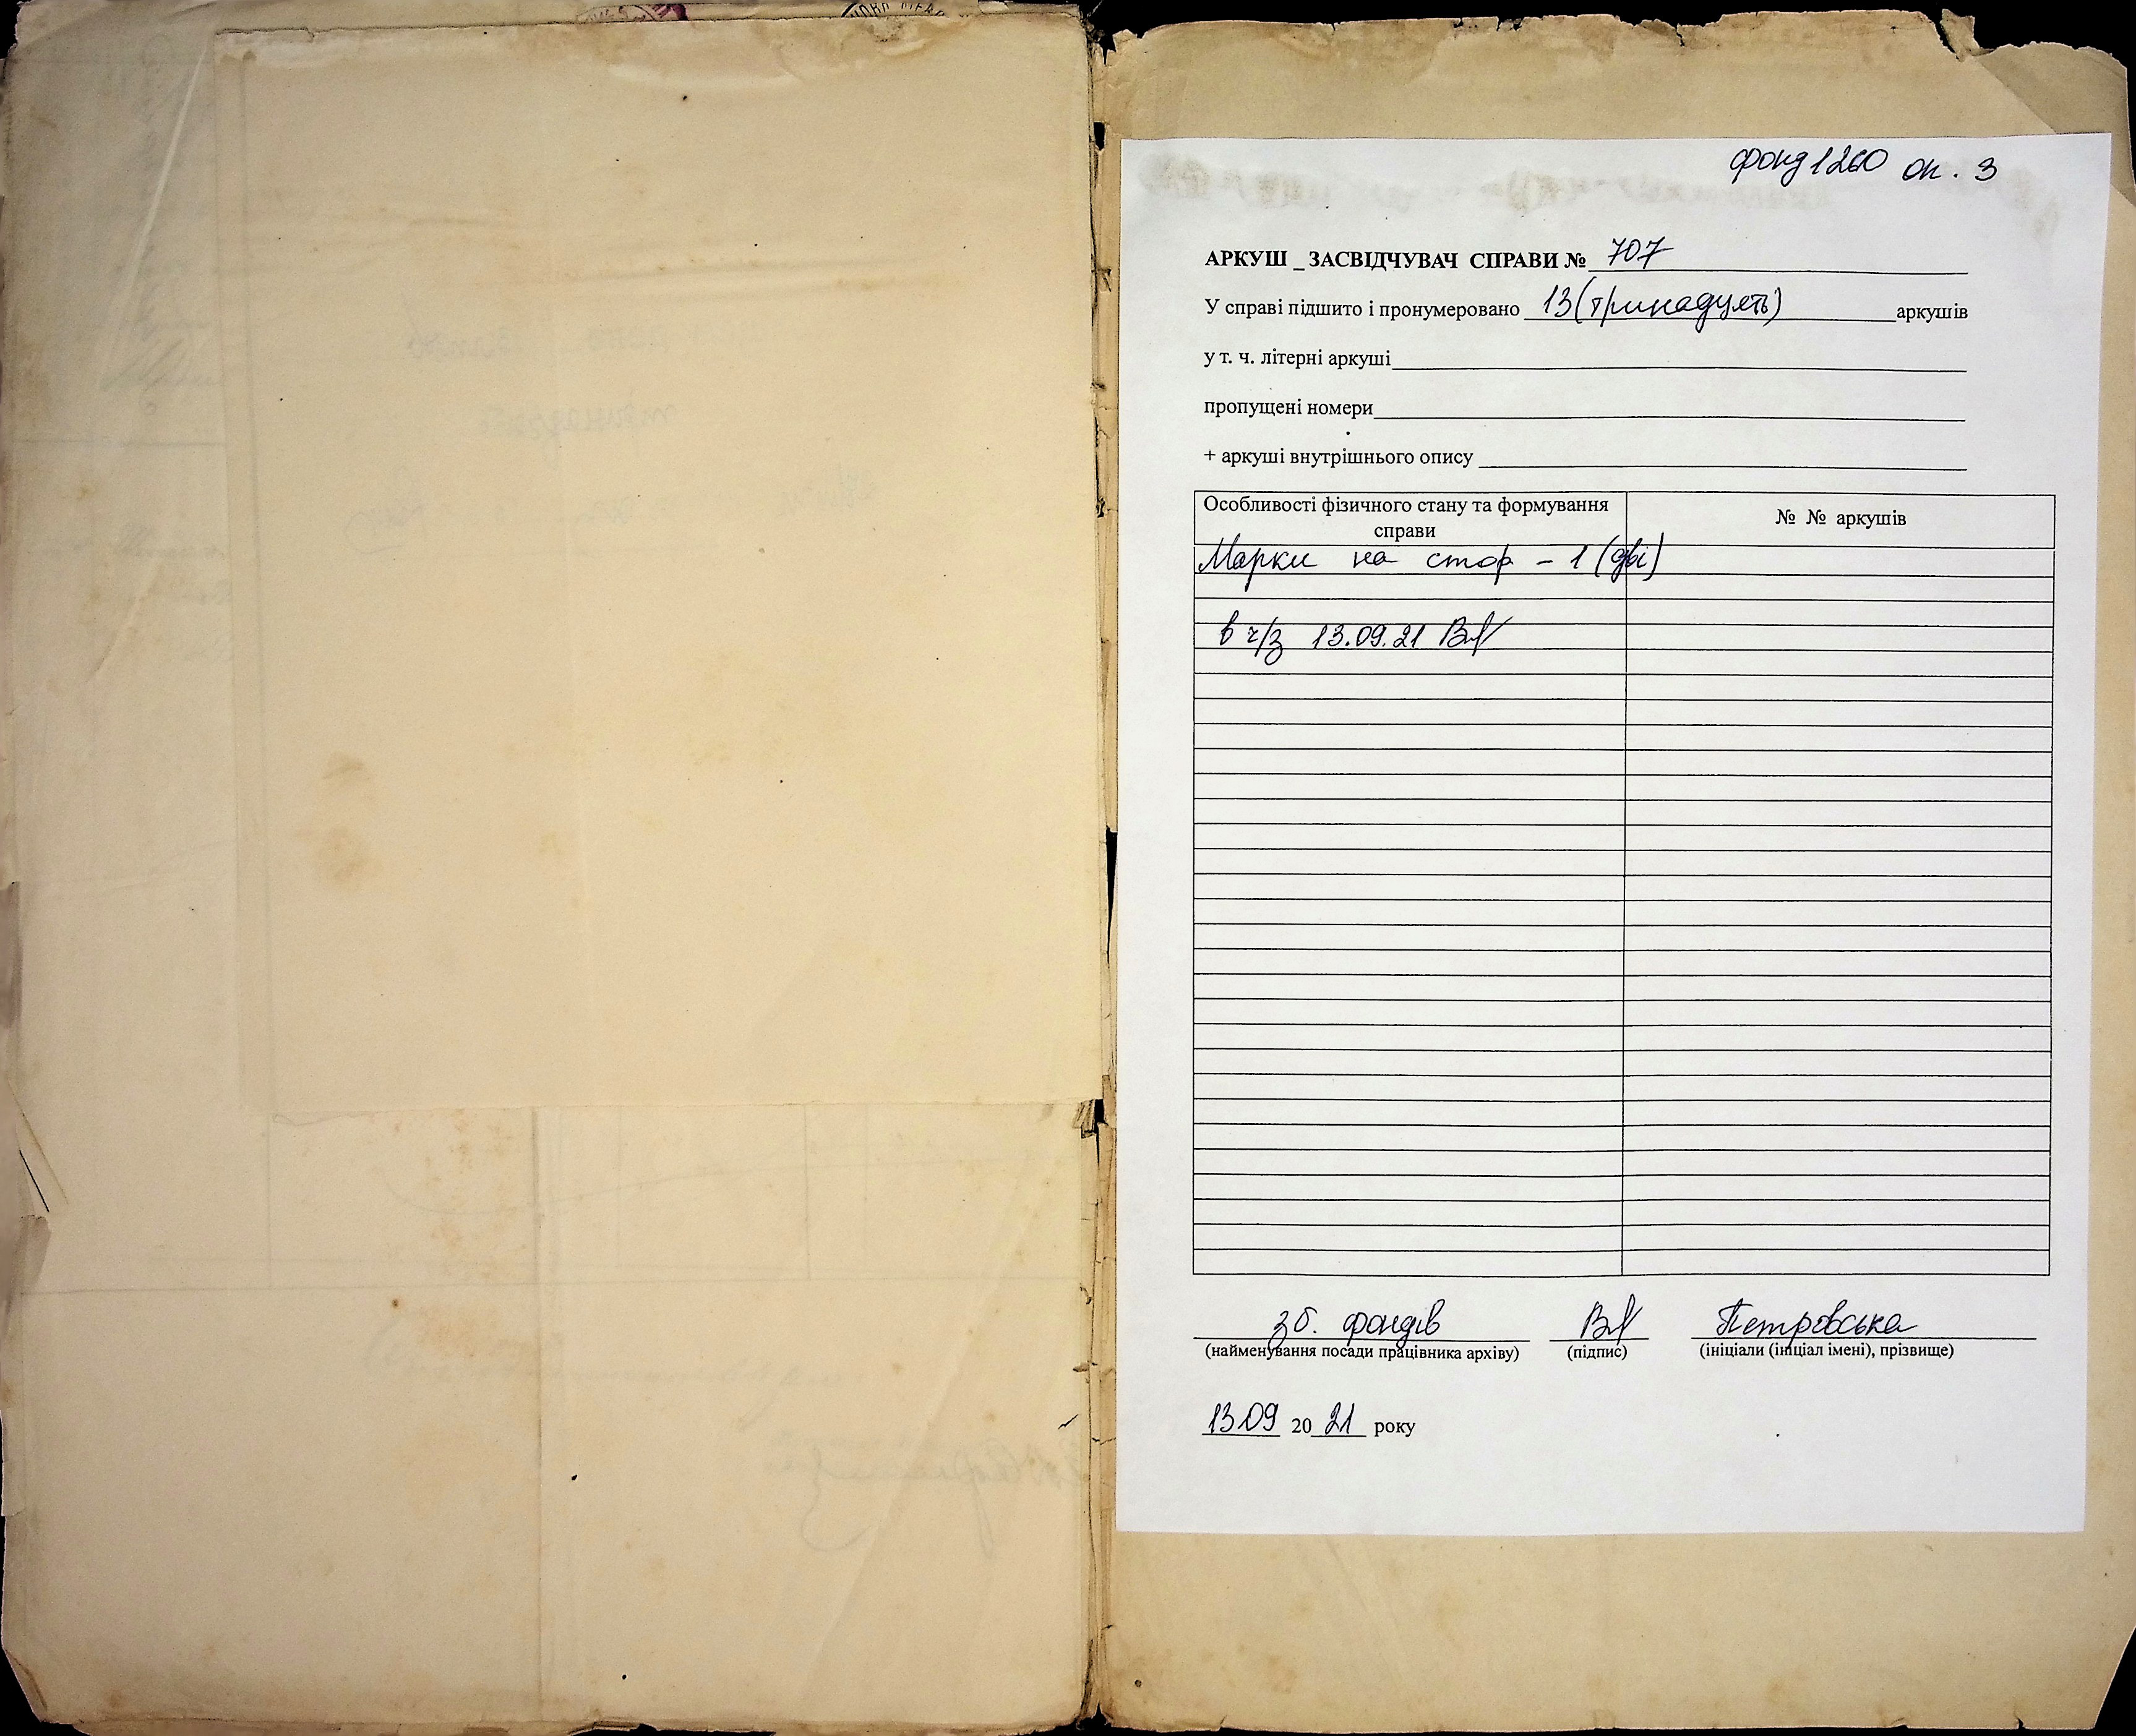 фонд 1260 оп. 3
АРКУШ _ ЗАСВІДЧУВАЧ СПРАВИ № 707
У справі підшито і пронумеровано 13 (тринадцять) аркушів
у т. ч. літерні аркуші
пропущені номери
+ аркуші внутрішнього опису
Особливості фізичного стану та формування справи
№ № аркушів
Марки на стор – 1 (дві)
в ч/з 13.09.21
зб. фондів Петровська
(найменування посади працівника архіву) (підпис) (ініціали (ініціал імені), прізвище)
13.09 2021 року